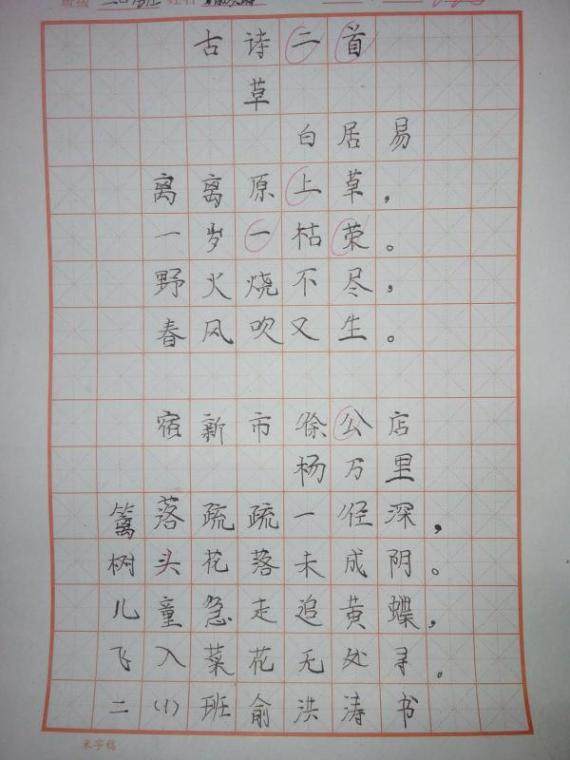 古诗二首
草
白居易
离离原上草，
一岁一枯荣。
野火烧不尽，
春风吹又生。
宿新市徐公店
杨万里
篱落疏疏一径深，
树头花落未成阴。
儿童急走追黄蝶，
飞入菜花无处寻。
二(1)班俞洪涛书
米字格